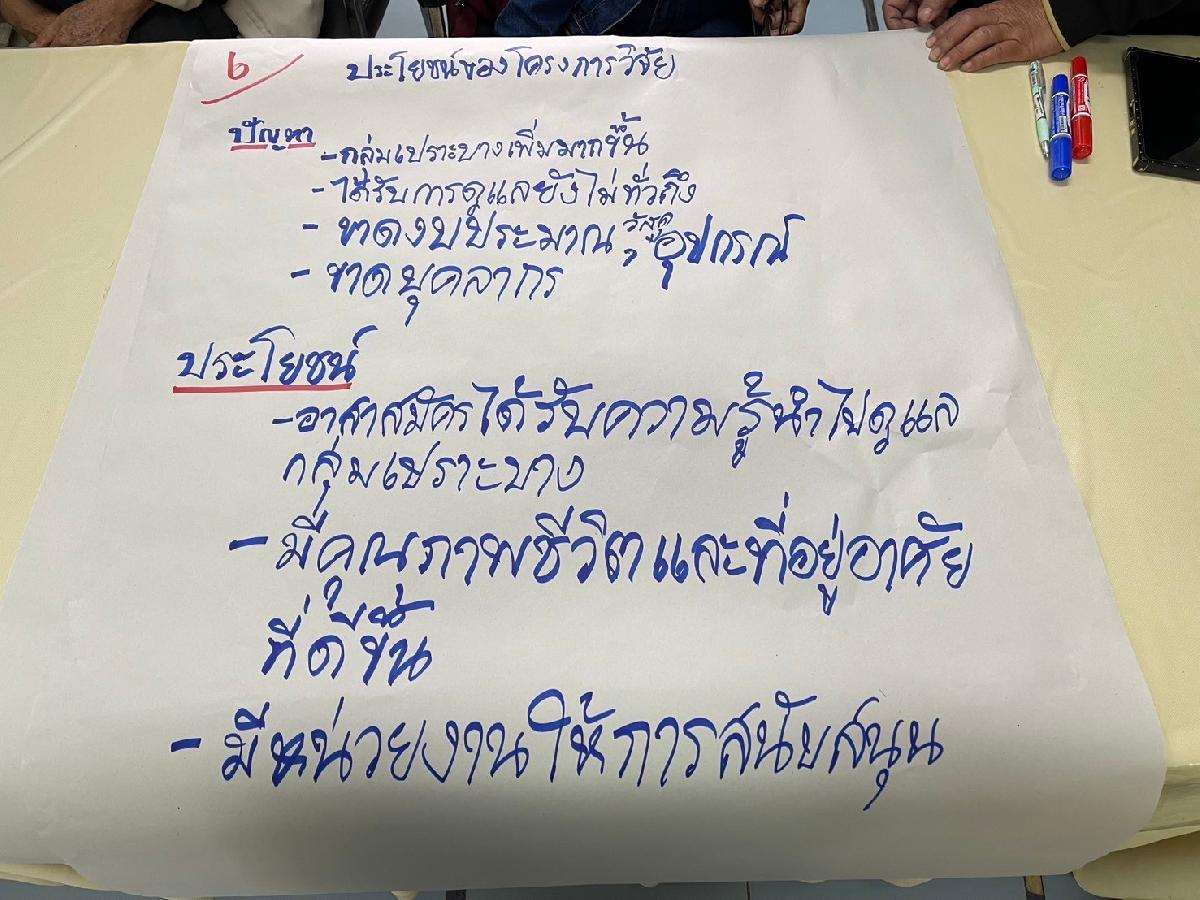 ๖
ประโยชน์ของโครงการวิจัย
ปัญหา
-กลุ่มเปราะบางเพิ่มมากขึ้น
-ได้รับการดูแลยังไม่ทั่วถึง
- ขาดงบประมาณ, วัสดุอุปกรณ์
- ขาดบุคลากร
ประโยชน์
-อาสาสมัครได้รับความรู้นำไปดูแล
กลุ่มเปราะบาง
- มีคุณภาพชีวิตและที่อยู่อาศัย
ที่ดีขึ้น
- มีหน่วยงานให้การสนับสนุน